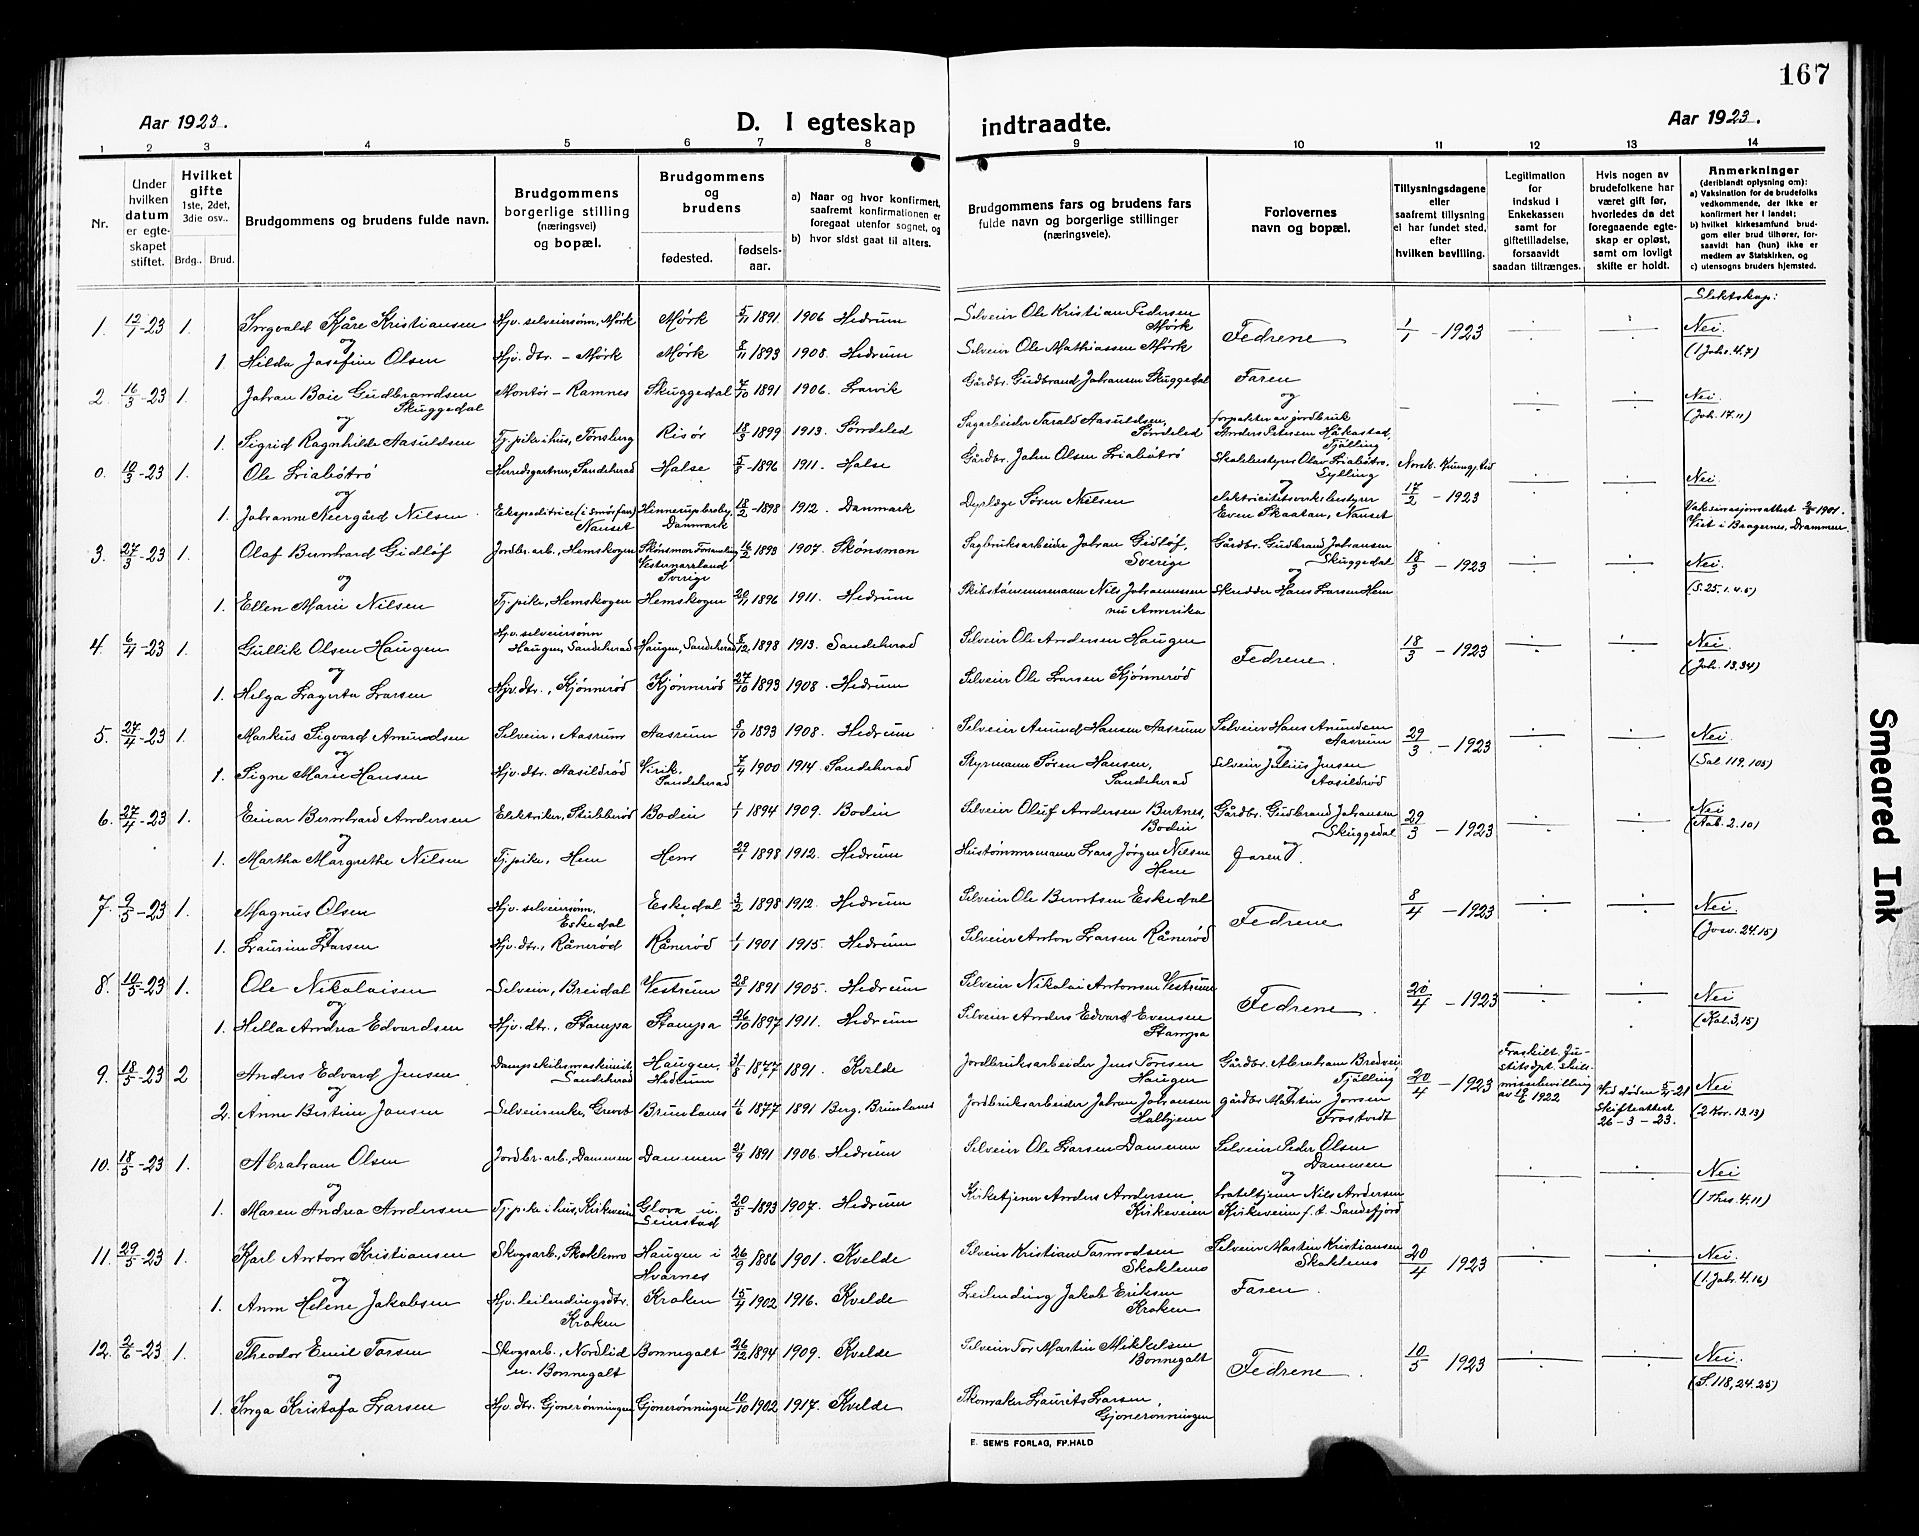 167
Aar 1923.
D. I egteskap indtraadte.
Aar 1923.
1 2 3 4 5 6 7 8 9 10 11 12 13 14
Nr.
Under hvilken datum er egteskapet stiftet.
Hvilket gifte 1ste, 2det, 3die osv..
Brdg.. Brud.
Brudgommens og brudens fulde navn.
Brudgommens borgerlige stilling (næringsvei) og bopæl.
Brudgommens og brudens
fødested.
fødselsaar.
a) Naar og hvor konfirmert, saafremt konfirmationen er foregaat utenfor sognet, og
b) hvor sidst gaat til alters.
Brudgommens fars og brudens fars fulde navn og borgerlige stillinger (næringsveie).
Forlovernes navn og bopæl.
Tillysningsdagene eller saafremt tillysning ei har fundet sted, efter hvilken bevilling.
Legitimation for indskud i Enkekassen samt for giftetilladelse, forsaavidt saadan tiltrænges.
Hvis nogen av brudefolkene har været gift før, hvorledes da det foregaaende egteskap er opløst, samt om lovligt skifte er holdt.
Anmerkninger (deriblandt oplysning om):
a) Vaksination for de brudefolks vedkommende, der ikke er konfirmert her i landet;
b) hvilket kirkesamfund brudgom eller brud tilhører, forsaavidt han (hun) ikke er medlem av Statskirken, og
c) utensogns bruders hjemsted.
Slektskap:
1. 12/1-23 1. Ingvald Kåre Kristiansen Hjv. selveiersønn, Mørk Mørk 5/11 1891 1906 Hedrum Selveier Ole Kristian Pedersen Mørk Fedrene 1/1 - 1923 Nei.
og
1. Hilda Josefine Olsen Hjv. dtr. - Mørk Mørk 8/11 1893 1908. Hedrum Selveier Ole Mathiassen Mørk (1 Joh. 4.7)
2. 16/3-23 1. Johan Boie Gudbrandsen Skuggedal Montør - Ramnes Skuggedal 7/10 1891 1906. Larvik Gårdbr. Gudbrand Johansen Skuggedal Faren - Nei.
og og (Joh. 17.11)
1. Sigrid Ragnhilde Aasuldsen Tj. pike i hus, Tønsberg Risør 18/3 1899 1913. Søndeled Sagarbeider Tarald Aasuldsen, Søndeled forpakter av jordbruk Anders Petersen Håkastad, Tjølling
0. 10/3-23 1. Ole Liabøtrø Herredsgartner, Sandeherad Halse 1896 1911. Halse Gårdbr. John Olsen Liabøtrø Skolebestyrer Olav Liabøtrø, Sylling Norsk. Kunng. tid 17/2 - 1923 Nei.
og og
1. Johanne Neergård Nilsen Ekspeditrice (i smørforr.) Nanset Hinnerup, Danmark 18/2-1898 1912. Danmark Dyrlæge Søren Nielsen elektricitetsverksbestyrer Even Skaatan, Nanset Vaksinasjonsattest 1901. Vist i Bragernes, Drammen
3. 27/3-23 1. Olaf Bernhard Gidlöf Jordbr. arb., Hemskogen Skönsmon Forsamling Vesternorrland Sverige 16/2 1893 1907. Skönsmon Sagbruksarbeider Johan Gidlöf, Sverige Gårdbr. Gudbrand Johansen Skuggedal 18/3 - 1923 Nei.
og og
1. Ellen Marie Nilsen Tj. pike, Hemskogen Hemskogen 20/1 1896 1911. Hedrum Skibstømmermann Nils Johannessen nu Amerika Skredder Hans Larsen Hem (S. 25. 1. 4. 5)
4. 6/4-23 1. Gullik Olsen Haugen Hjv. selveiersønn Haugen, Sandeherad Haugen, Sandeherad 8/12 1898 1913. Sandeherad Selveier Ole Andersen Haugen Fedrene. 18/3 - 1923 Nei.
og
1. Helga Lagerta Larsen Hjv. dtr., Kjønnerød Kjønnerød 27/10 1893 1908. Hedrum Selveier Ole Larsen Kjønnerød (Joh. 13.34)
5. 27/4-23 1. Markus Sigvard Amundsen Selveier, Aasrum Aasrum 8/10 1893 1908. Hedrum Selveier Amund Hansen Aasrum Selveier Hans Amundsen Aasrum 29/3. - 1923 Nei.
og og
1. Signe Marie Hansen Hjv. dtr. Aasildrød Virik, Sandeherad 7/4 1900 1914. Sandeherad Styrmann Søren Hansen, Sandeherad Selveier Julius Jensen Aasildrød (Sal. 119. 105)
6. 27/4-23 1. Einar Bernhard Andersen Elektriker, Stubberød Bodin 1/1 1894 1909. Bodin Selveier Oluf Andersen Bertnes, Bodin Gårdbr. Gudbrand Johansen Skuggedal 29/3 - 1923 Nei
og og (Aab. 2. 10)
1. Martha Margrethe Nilsen Tj. pike, Hem Hem 29/1 1898 1912. Hedrum Hustømmermann Lars Jørgen Nilsen Hem Faren
7. 9/5-23 1. Magnus Olsen Hjv. selveiersønn, Eskedal Eskedal 3/2 1898 1912. Hedrum Selveier Ole Berntsen Eskedal Fedrene 8/4 - 1923 Nei.
og
1. Laurine Larsen Hjv. dtr., Rånerød Rånerød 1/1 1901 1915. Hedrum Selveier Anton Larsen Rånerød (Josv. 24.15)
8. 10/5-23 1. Ole Nikolaisen Selveier, Breidal Vestrum 28/1 1891 1905. Hedrum Selveier Nikolai Antonsen Vestrum Fedrene. 20/4 - 1923 Nei
og
1. Hella Andrea Edvardsen Hjv. dtr., Stampa Stampa 26/10 1897 1911. Hedrum Selveier Anders Edvard Evensen Stampa (Kol. 3, 15)
9. 18/5-23 2 Anders Edvard Jensen Dampskibsmaskinist, Sandeherad Haugen, Hedrum 31/8 1877 1891. Kvelde Jordbruksarbeider Jens Torsen Haugen Gårdbr. Abraham Bredvei, Tjølling 20/4 - 1923 Fraskilt Justitsdpt. skilsmissebevilling av 1922 Ved døden 5/4-21 Skifteattest 26-3-23. Nei
og og
2. Anne Bertine Jonsen Selveierenke, Grevet Brunlanes 11/6 1877 1891 Berg, Brunlanes Jordbruksarbeider Johan Johansen Holhjem gårdbr. Martin Jonsen Frostvedt (2 Kor. 13.13)
10. 18/5-23 1. Abraham Olsen Jordbr. arb., Dammen Dammen 21/9 1891 1906. Hedrum Selveier Ole Larsen Dammen Selveier Peder Olsen Dammen Nei
og og
1. Maren Andrea Andersen Tj. pike i hus, Kirkeveien Glova u. Seierstad 20/5 1893 1907. Hedrum Kirketjener Anders Andersen, Kirkeveien hoteltjener Nils Andersen Kirkeveien f. t. Sandefjord (1 Thes. 4. 11)
11. 29/5-23 1. Karl Anton Kristiansen Skogsarb., Skoklemo Haugen i Hvarnes 26/9 1886 1901. Kvelde Selveier Kristian Tarmodsen Skoklemo Selveier Martin Kristiansen Skoklemo 20/4 1923 Nei.
og
1. Ann Helene Jakobsen Hjv. leilendingsdtr. Kroken Kroken 15/4 1902 1916. Kvelde Leilending Jakob Eriksen Kroken Faren. (1. Joh. 4. 16)
12. 2/6-23 1. Theodor Emil Torsen Skogsarb., Nordlid u. Bonnegolt Bonnegolt 26/12 1894 1909. Kvelde Selveier Tor Martin Mikkelsen Bonnegolt Fedrene. 10/5 1923 Nei.
og (S. 118, 24. 25)
1. Inga Kristofa Larsen Hjv. dtr. Gjonerønningen Gjonerønningen 10/10 1902 1917. Kvelde Skomaker Laurits Larsen, Gjonerønningen
E. SEM'S FORLAG, FR.HALD
Smeared Ink